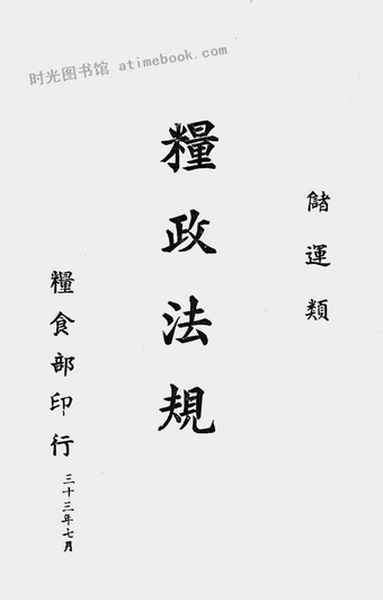 时光图书馆 atimebook.com
儲運類
糧政法規
糧食部印行
三十三年七月